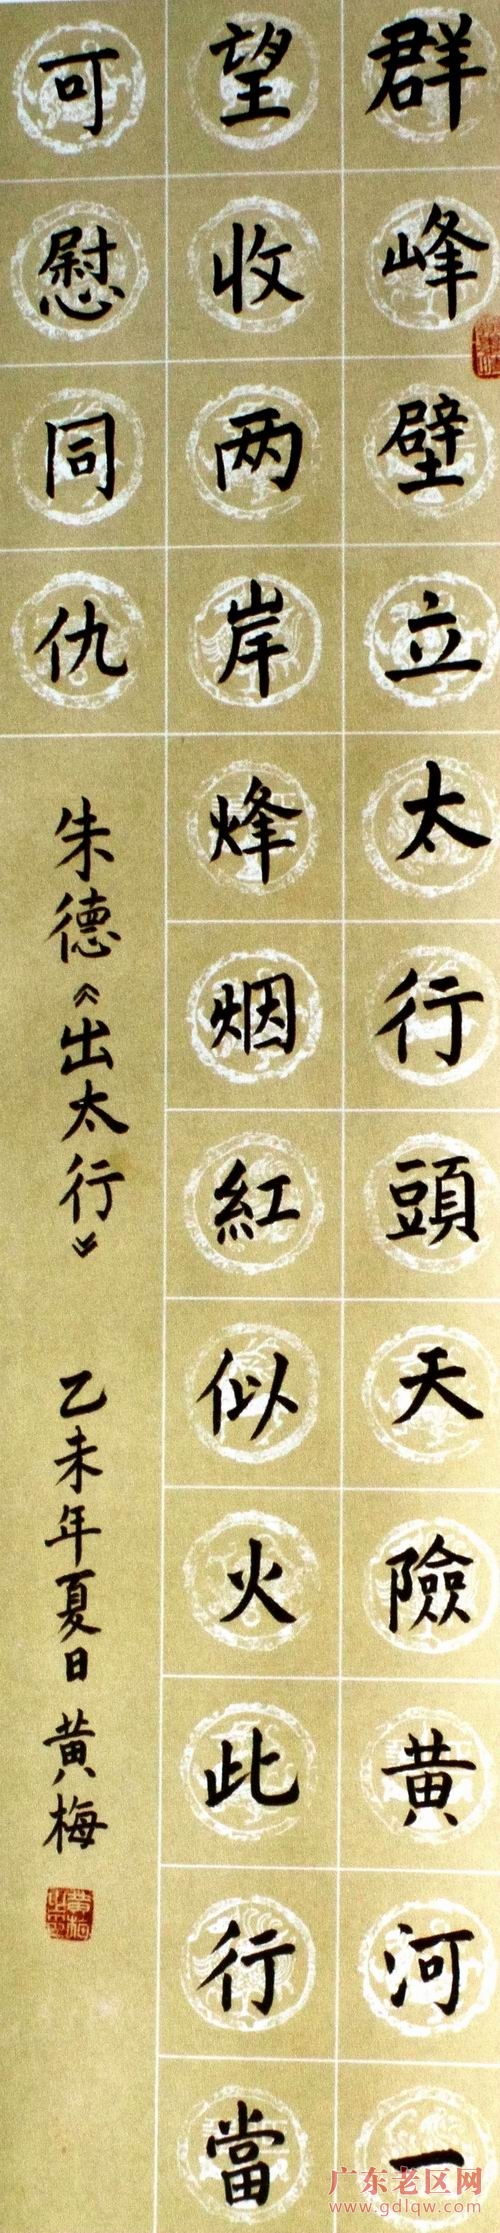 群峰壁立太行頭天險黄河一
望收两岸烽烟紅似火此行當
可慰同仇
朱德《出太行》 乙未年夏日 黄梅
广东老区网
www.gdlqw.com